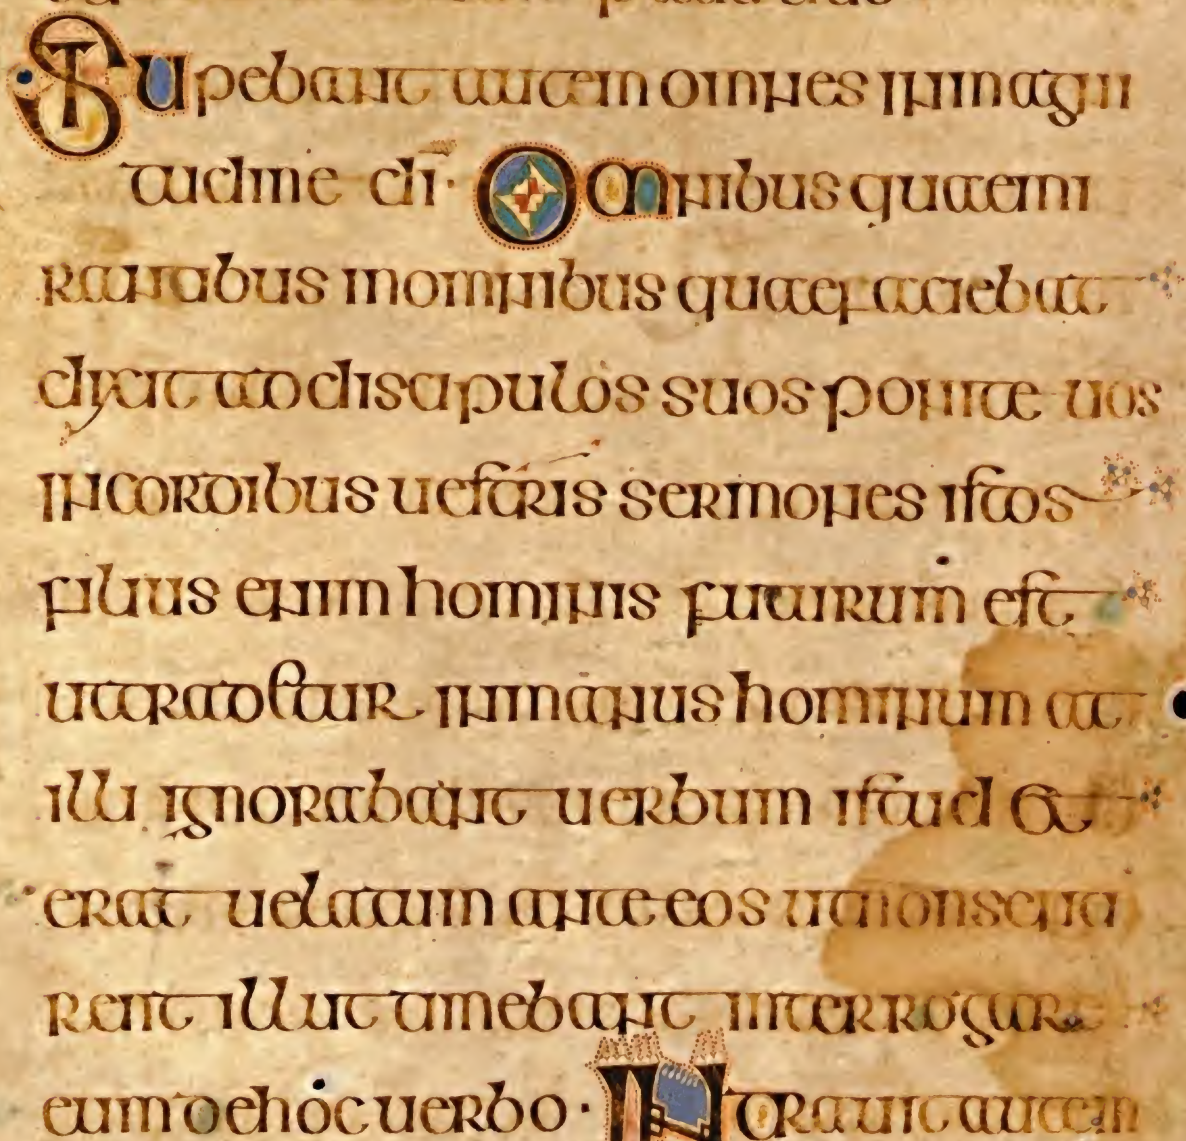 Stupebant autem omnes inmagni
tudine di · Omnibus quaemi
rantibus inomnibus quaefaciebat
dixit addiscipulos suos ponite uos
incordibus uestris sermones istos
filius enim hominis futurum est
uttradatur inmanus hominum at
illi ignorabant uerbum istud et
erat uelatum ante eos utnonsenti
rent illut timebant interrogare
eumdehoc uerbo · Intrauit autem